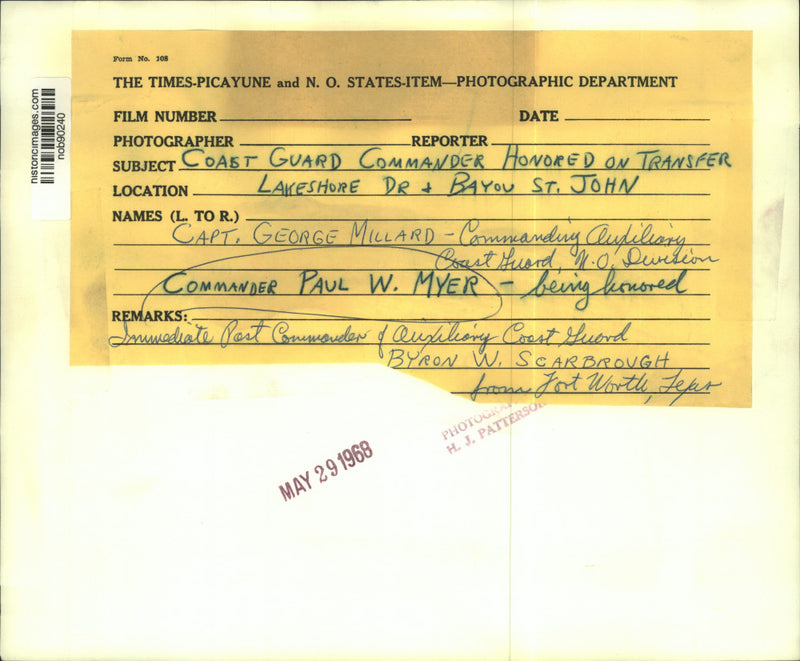 Form No. 108
THE TIMES-PICAYUNE and N. O. STATES-ITEM—PHOTOGRAPHIC DEPARTMENT
FILM NUMBER
DATE
PHOTOGRAPHER
REPORTER
SUBJECT COAST GUARD COMMANDER HONORED ON TRANSFER
LOCATION LAKESHORE DR & BAYOU ST. JOHN
NAMES (L. TO R.)
CAPT. GEORGE MILLARD - Commanding Auxiliary
Coast Guard, N.O. Division
COMMANDER PAUL W. MYER - being honored
REMARKS:
Immediate Past Commander of Auxiliary Coast Guard
BYRON W. SCARBROUGH
from Fort Worth, Texas
historicimages.com
nob90240
PHOTOGRA
H. J. PATTERSON
MAY 29 1968